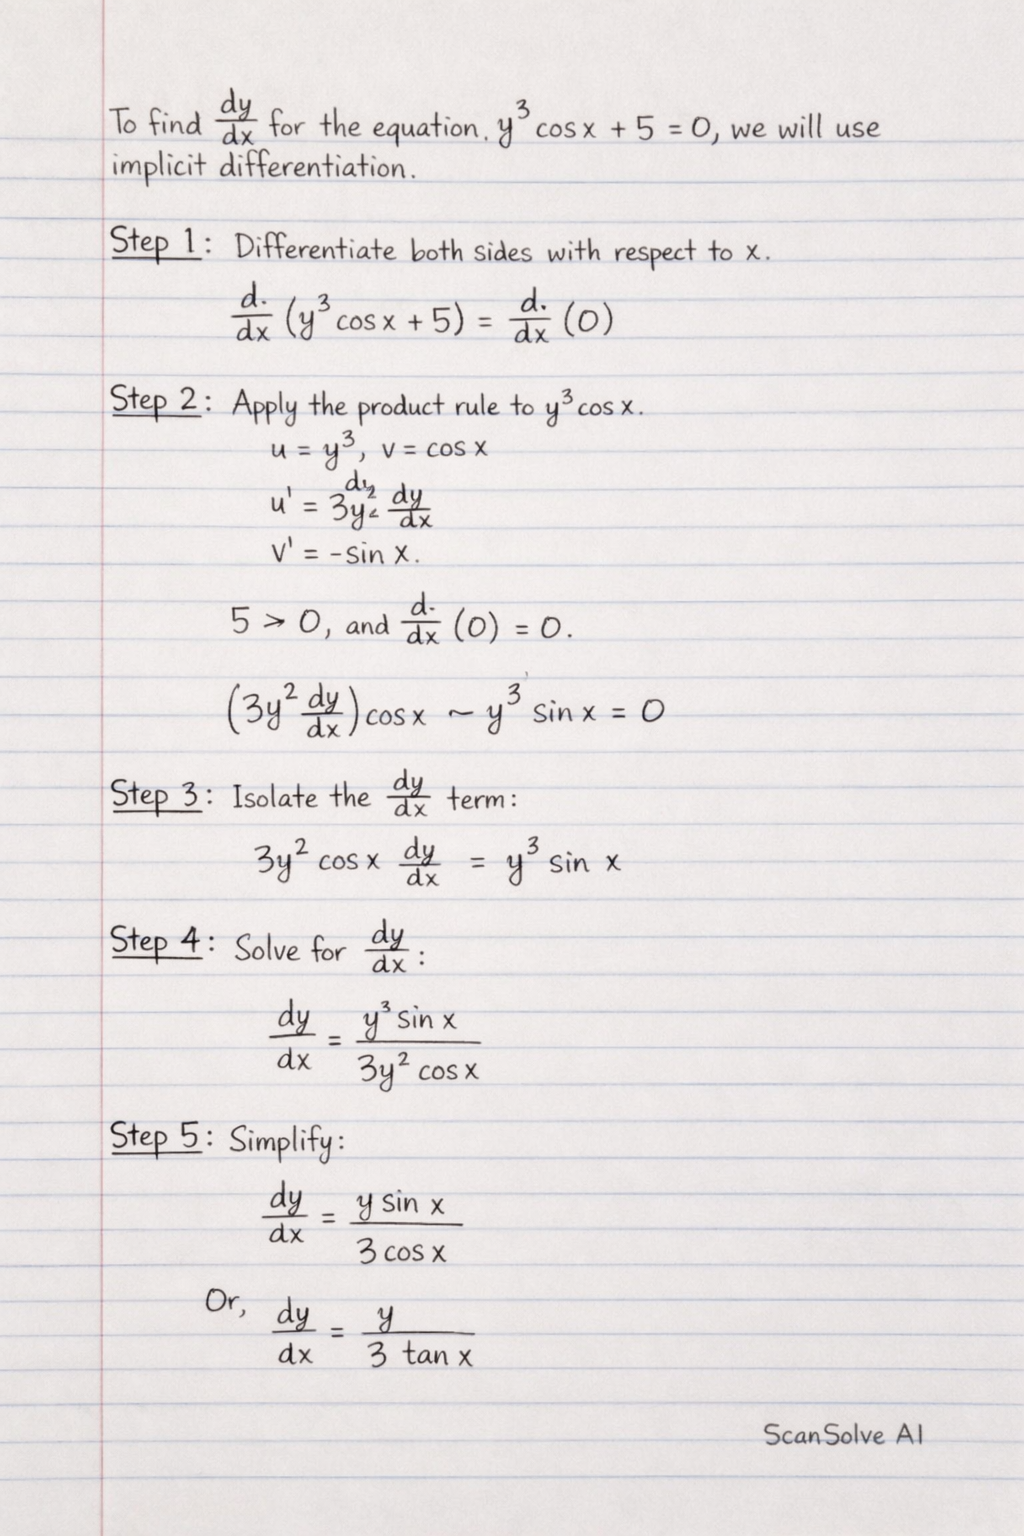 To find dy/dx for the equation. y³ cos x + 5 = 0, we will use
implicit differentiation.
Step 1: Differentiate both sides with respect to x.
d./dx (y³ cos x + 5) = d./dx (0)
Step 2: Apply the product rule to y³ cos x.
u = y³, v = cos x
u' = 3y² dy/dx
v' = -sin x.
5 > 0, and d./dx (0) = 0.
(3y² dy/dx) cos x ~ y³ sin x = 0
Step 3: Isolate the dy/dx term:
3y² cos x dy/dx = y³ sin x
Step 4: Solve for dy/dx:
dy/dx = y³ sin x / 3y² cos x
Step 5: Simplify:
dy/dx = y sin x / 3 cos x
Or, dy/dx = y / 3 tan x
ScanSolve AI